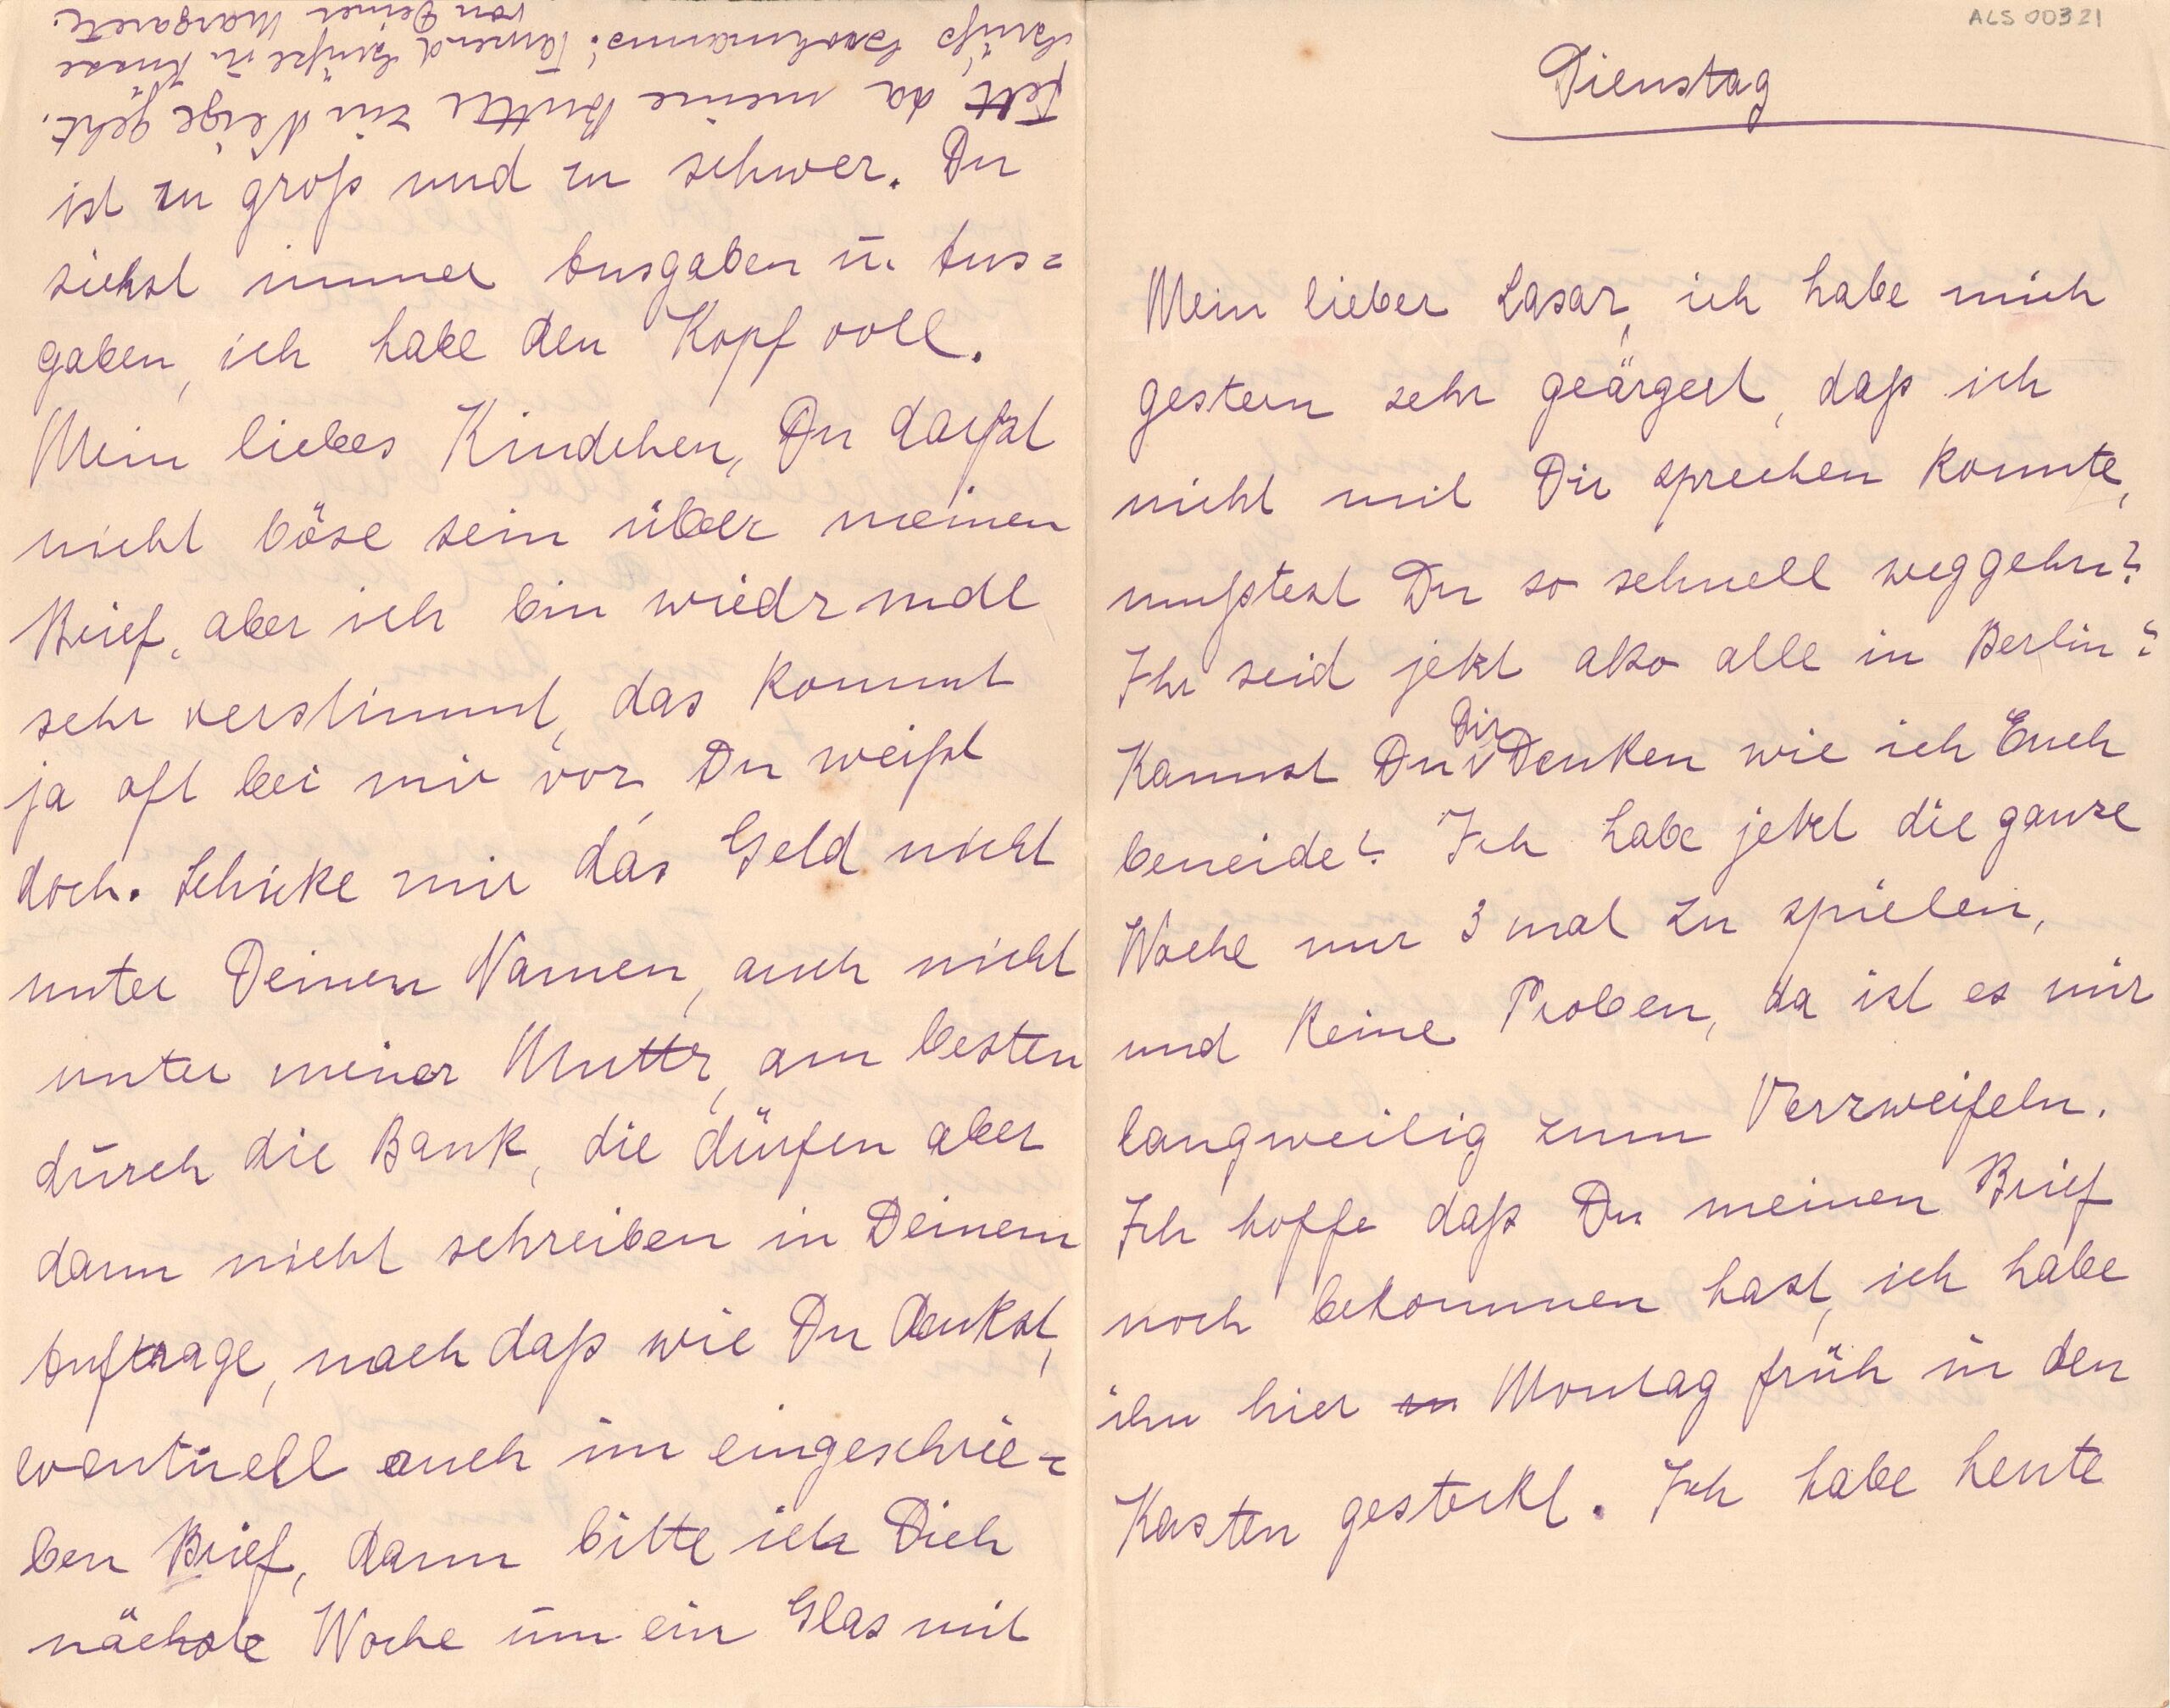 ALS 00321
Dienstag
Mein lieber Lasar, ich habe mich
gestern sehr geärgert, daß ich
nicht mit Dir sprechen konnte,
mußtest Du so schnell weggehn?
Ihr seid jetzt also alle in Berlin?
Kannst Du Dir Denken wie ich Euch
beneide? Ich habe jetzt die ganze
Woche nur 3 mal zu spielen,
und keine Proben, da ist es mir
langweilig zum Verzweifeln.
Ich hoffe daß Du meinen Brief
noch bekommen hast, ich habe
ihn hier Montag früh in den
Kasten gesteckt. Ich habe heute
ist zu groß und zu schwer. Du
siehst immer Ausgaben u. Aus=
gaben, ich habe den Kopf voll.
Mein liebes Kindchen, Du darfst
nicht böse sein über meinen
Brief, aber ich bin wiedr mal
sehr verstimmt, das kommt
ja oft bei mir vor, Du weißt
doch. Schicke mir das Geld nicht
unter Deinen Namen, auch nicht
unter meiner Muttr, am besten
durch die Bank, die dürfen aber
dann nicht schreiben in Deinem
Auftrage, nach daß wie Du denkst,
eventuell auch im eingeschrie=
ben Brief, dann bitte ich Dich
nächste Woche um ein Glas mit
Fett, da meine Butter zur Neige geht.
Gruß Tausend Grüße u. Küsse
von Deiner Margarete.